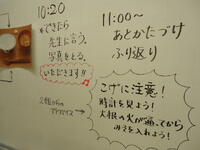 10:20
※できたら
先生に言う。
写真をとる。
いただきます!!
2組からの
アドバイス
11:00～
あとかたづけ
ふり返り
こげに注意!
時計を見よう!
大根の火が通ってから
みそを入れよう!